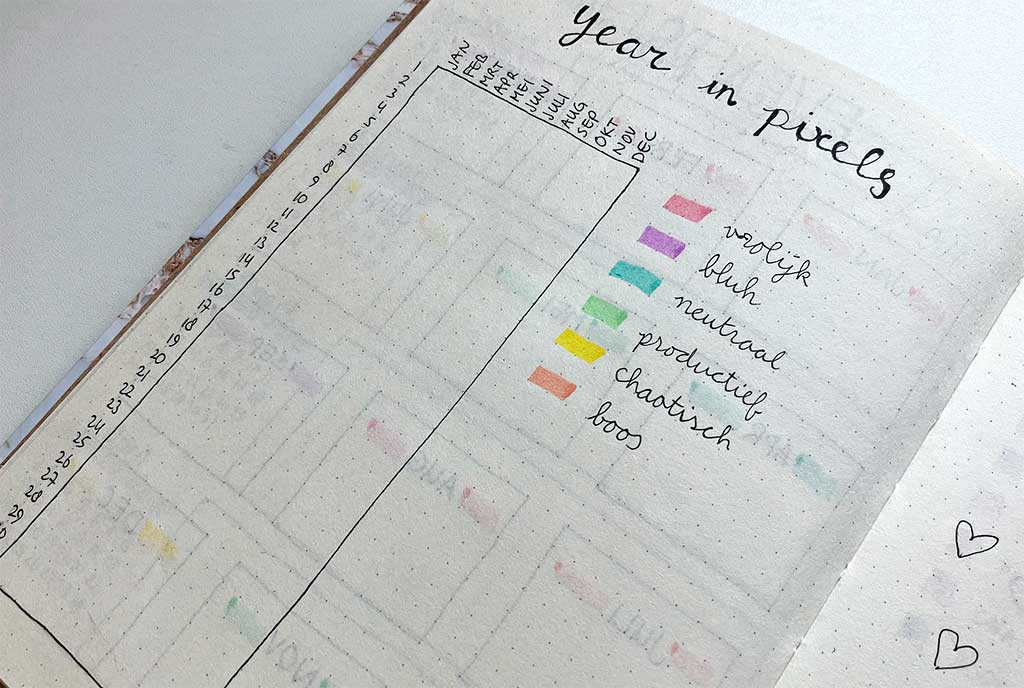 year in pixels
JAN
FEB
MRT
APR
MEI
JUNI
JULI
AUG
SEP
OKT
NOV
DEC
1
2
3
4
5
6
7
8
9
10
11
12
13
14
15
16
17
18
19
20
21
22
23
24
25
26
27
28
29
vrolijk
bluh
neutraal
productief
chaotisch
boos